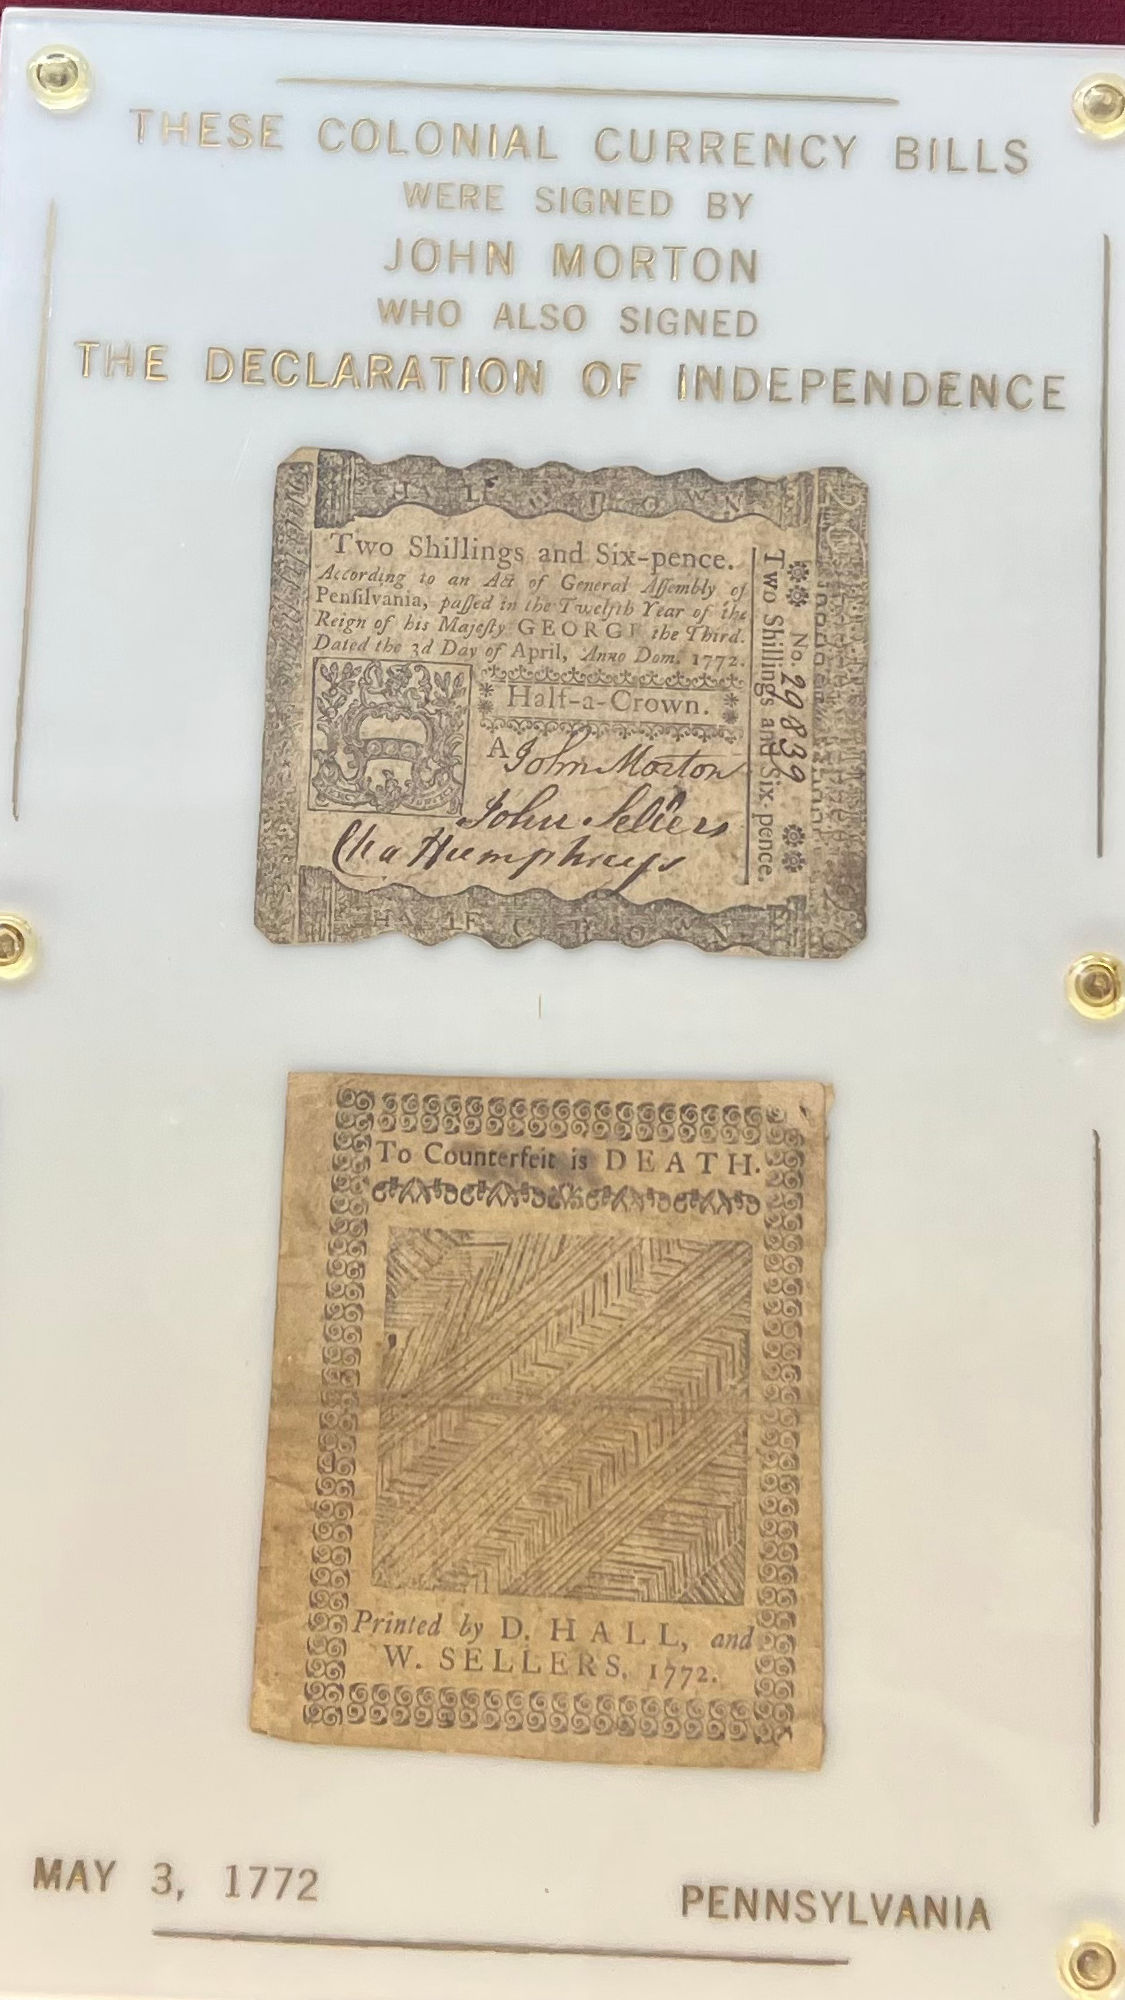 THESE COLONIAL CURRENCY BILLS
WERE SIGNED BY
JOHN MORTON
WHO ALSO SIGNED
THE DECLARATION OF INDEPENDENCE
HALF CROWN
Two Shillings and Six-pence.
According to an Act of General Aſſembly of
Penſilvania, paſſed in the Twelfth Year of the
Reign of his Majeſty GEORGE the Third.
Dated the 3d Day of April, Anno Dom. 1772.
Half-a-Crown.
A John Morton
John Sellers
Cha Humphreys
HALF CROWN
No. 29839
Two Shillings and Six-pence.
To Counterfeit is DEATH.
Printed by D. HALL, and
W. SELLERS. 1772.
MAY 3, 1772
PENNSYLVANIA